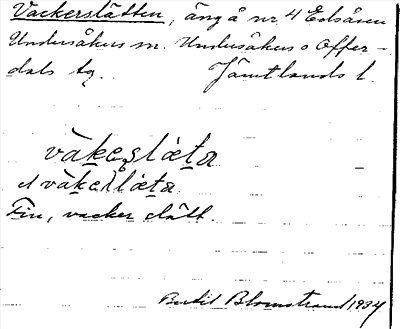 Vackerslätten, äng å nr 4 Edsåsen
Undersåkers sn. Undersåkers o Offer-
dals tg. Jämtlands l.
Fin, vacker slått.
Bertil Blomstrand 1934